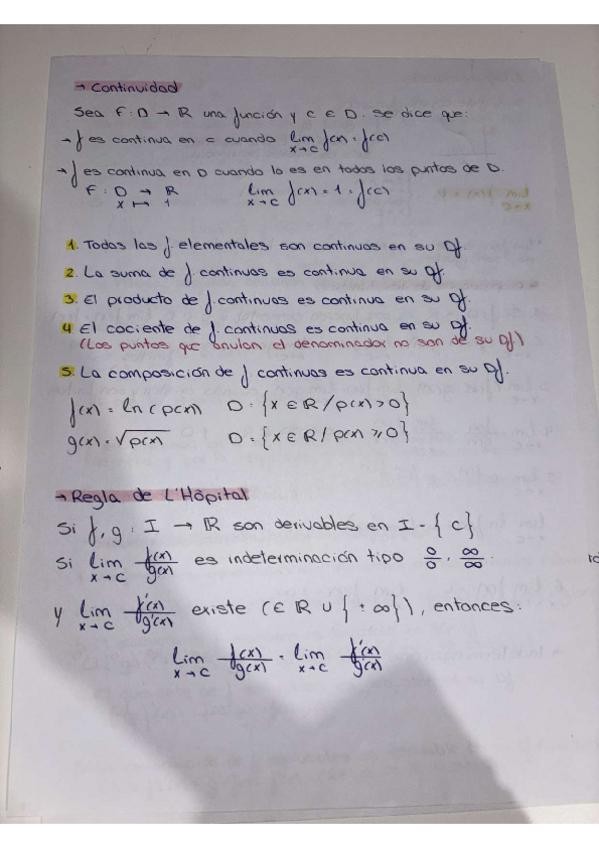 → Continuidad
Sea f: D → ℝ una función y c ∈ D. Se dice que:
→ f es continua en c cuando lim x→c f(x) = f(c)
→ f es continua en D cuando lo es en todos los puntos de D.
f: D → ℝ    lim x→c f(x) = 1 = f(c)
x ↦ 1
1. Todas las f elementales son continuas en su Df.
2. La suma de f. continuas es continua en su Df.
3. El producto de f. continuas es continua en su Df.
4 El cociente de f. continuas es continua en su Df.
(Los puntos que anulan el denominador no son de su Df)
5. La composición de f continuas es continua en su Df.
f(x) = ln(p(x))    D = {x ∈ ℝ / p(x) > 0}
g(x) = √p(x)    D = {x ∈ ℝ / p(x) ≥ 0}
→ Regla de L'Hôpital
Si f, g : I → ℝ son derivables en I - {c}
Si lim x→c f(x)/g(x) es indeterminación tipo 0/0, ∞/∞.
y lim x→c f'(x)/g'(x) existe (∈ ℝ ∪ {±∞}), entonces:
lim x→c f(x)/g(x) = lim x→c f'(x)/g'(x)